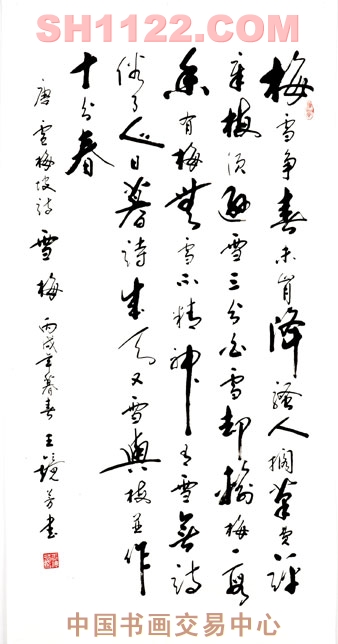 SH1122.COM
梅雪争春未肯降骚人搁笔费评
章梅须逊雪三分白雪却输梅一段
香有梅無雪不精神有雪無诗
俗了人日暮诗成天又雪與梅並作
十分春
唐 梅坡诗 雪梅 丙戌年暮春王镜芳书
中国书画交易中心